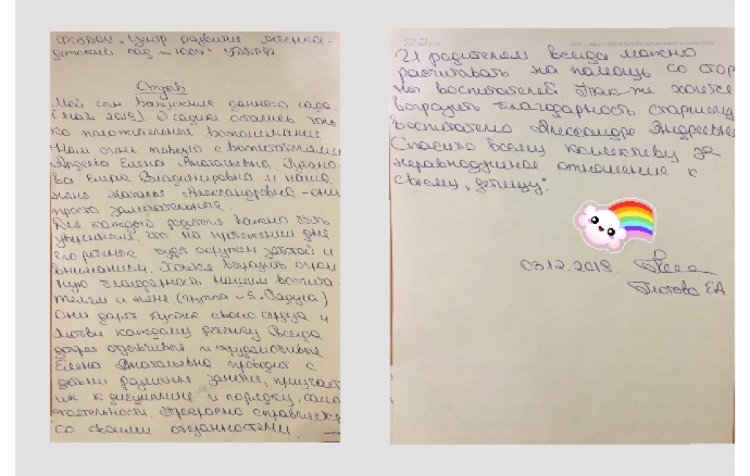 ФГБДОУ "Центр развития ребенка-
детский сад №
Отзыв
Мой сын выпускник данного сада
О садике остались толь
ко положительные воспоминание
Нам очень повезло с воспитателями
Елена Анатольевна
ва Елена Владимировна и наша
няня Наталья Александровна - они
просто замечательные.
Для каждого родителя важно быть
уверенный, что на протяжении дня
его ребенок будет окружен заботой и
вниманием. Хочется выразить огром
ную благодарность нашим воспита
телям и няне (группа №5 "Радуга)
Они дарят кусочек своего сердца и
любви каждому ребенку Всегда
добрая отзывчивые и трудолюбивые
Елена Анатольевна проводит с
детьми различные занятие, приучает
их к дисциплине и порядку, само
стоятельности. Прекрасно справляется
со своими обязанностями.
И родителям всегда можно
расчитывать на помощь со сторо
ны воспитателей. Так-же хочется
выразить благодарность старшему
воспитателю Александре Андреевне
Спасибо всему колективу за
неравнодушное отношение к
своему "детищу".
03.12.2018.
ЕА